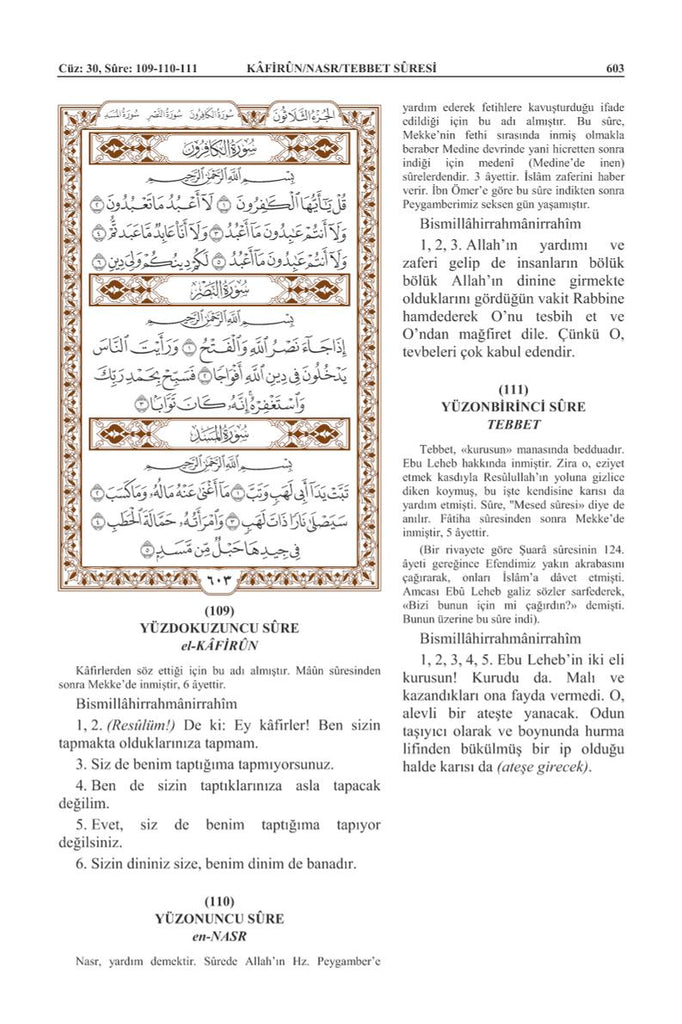 Cüz: 30, Sûre: 109-110-111
KÂFİRÛN/NASR/TEBBET SÛRESİ
603
الجزء الثلاثون
سورة الكافرون سورة النصر سورة المسد
سُورَةُ الكَافِرُونَ
بِسْمِ اللَّهِ الرَّحْمَٰنِ الرَّحِيمِ
قُلْ يَا أَيُّهَا الْكَافِرُونَ ﴿١﴾ لَا أَعْبُدُ مَا تَعْبُدُونَ ﴿٢﴾
وَلَا أَنْتُمْ عَابِدُونَ مَا أَعْبُدُ ﴿٣﴾ وَلَا أَنَا عَابِدٌ مَا عَبَدْتُمْ ﴿٤﴾
وَلَا أَنْتُمْ عَابِدُونَ مَا أَعْبُدُ ﴿٥﴾ لَكُمْ دِينُكُمْ وَلِيَ دِينِ ﴿٦﴾
سُورَةُ النَّصْرِ
بِسْمِ اللَّهِ الرَّحْمَٰنِ الرَّحِيمِ
إِذَا جَاءَ نَصْرُ اللَّهِ وَالْفَتْحُ ﴿١﴾ وَرَأَيْتَ النَّاسَ
يَدْخُلُونَ فِي دِينِ اللَّهِ أَفْوَاجًا ﴿٢﴾ فَسَبِّحْ بِحَمْدِ رَبِّكَ
وَاسْتَغْفِرْهُ إِنَّهُ كَانَ تَوَّابًا ﴿٣﴾
سُورَةُ المَسَدِ
بِسْمِ اللَّهِ الرَّحْمَٰنِ الرَّحِيمِ
تَبَّتْ يَدَا أَبِي لَهَبٍ وَتَبَّ ﴿١﴾ مَا أَغْنَىٰ عَنْهُ مَالُهُ وَمَا كَسَبَ ﴿٢﴾
سَيَصْلَىٰ نَارًا ذَاتَ لَهَبٍ ﴿٣﴾ وَامْرَأَتُهُ حَمَّالَةَ الْحَطَبِ ﴿٤﴾
فِي جِيدِهَا حَبْلٌ مِنْ مَسَدٍ ﴿٥﴾
٦٠٣
(109)
YÜZDOKUZUNCU SÛRE
el-KÂFİRÛN
Kâfirlerden söz ettiği için bu adı almıştır. Mâûn sûresinden
sonra Mekke’de inmiştir, 6 âyettir.
Bismillâhirrahmânirrahîm
1, 2. (Resûlüm!) De ki: Ey kâfirler! Ben sizin
tapmakta olduklarınıza tapmam.
3. Siz de benim taptığıma tapmıyorsunuz.
4. Ben de sizin taptıklarınıza asla tapacak
değilim.
5. Evet, siz de benim taptığıma tapıyor
değilsiniz.
6. Sizin dininiz size, benim dinim de banadır.
(110)
YÜZONUNCU SÛRE
en-NASR
Nasr, yardım demektir. Sûrede Allah’ın Hz. Peygamber’e
yardım ederek fetihlere kavuşturduğu ifade
edildiği için bu adı almıştır. Bu sûre,
Mekke’nin fethi sırasında inmiş olmakla
beraber Medine devrinde yani hicretten sonra
indiği için medenî (Medine’de inen)
sûrelerdendir. 3 âyettir. İslâm zaferini haber
verir. İbn Ömer’e göre bu sûre indikten sonra
Peygamberimiz seksen gün yaşamıştır.
Bismillâhirrahmânirrahîm
1, 2, 3. Allah’ın yardımı ve
zaferi gelip de insanların bölük
bölük Allah’ın dinine girmekte
olduklarını gördüğün vakit Rabbine
hamdederek O’nu tesbih et ve
O’ndan mağfiret dile. Çünkü O,
tevbeleri çok kabul edendir.
(111)
YÜZONBİRİNCİ SÛRE
TEBBET
Tebbet, «kurusun» manasında bedduadır.
Ebu Leheb hakkında inmiştir. Zira o, eziyet
etmek kasdıyla Resûlullah’ın yoluna gizlice
diken koymuş, bu işte kendisine karısı da
yardım etmişti. Sûre, "Mesed sûresi» diye de
anılır. Fâtiha sûresinden sonra Mekke’de
inmiştir, 5 âyettir.
(Bir rivayete göre Şuarâ sûresinin 124.
âyeti gereğince Efendimiz yakın akrabasını
çağırarak, onları İslâm’a dâvet etmişti.
Amcası Ebû Leheb galiz sözler sarfederek,
«Bizi bunun için mi çağırdın?» demişti.
Bunun üzerine bu sûre indi).
Bismillâhirrahmânirrahîm
1, 2, 3, 4, 5. Ebu Leheb’in iki eli
kurusun! Kurudu da. Malı ve
kazandıkları ona fayda vermedi. O,
alevli bir ateşte yanacak. Odun
taşıyıcı olarak ve boynunda hurma
lifinden bükülmüş bir ip olduğu
halde karısı da (ateşe girecek).